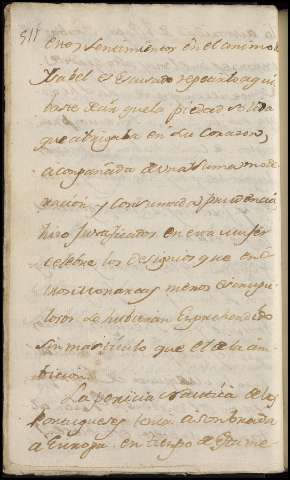 511
estos sentimientos en el animo de
Ysabel es escusado repetirlo aqui
baste decir que la piedad solida
que abrigaba en su corazon,
acompañada de una suma mode
racion y consumada prudencia
hizo justificados en esta muger
celebre los designios que en
monarcas menos escrupu
losos se hubieran emprehendido
sin mas titulo que el de la am
bicion.
La pericia nautica de los
Portugueses tenia asombrada
a Europa en tiempo de